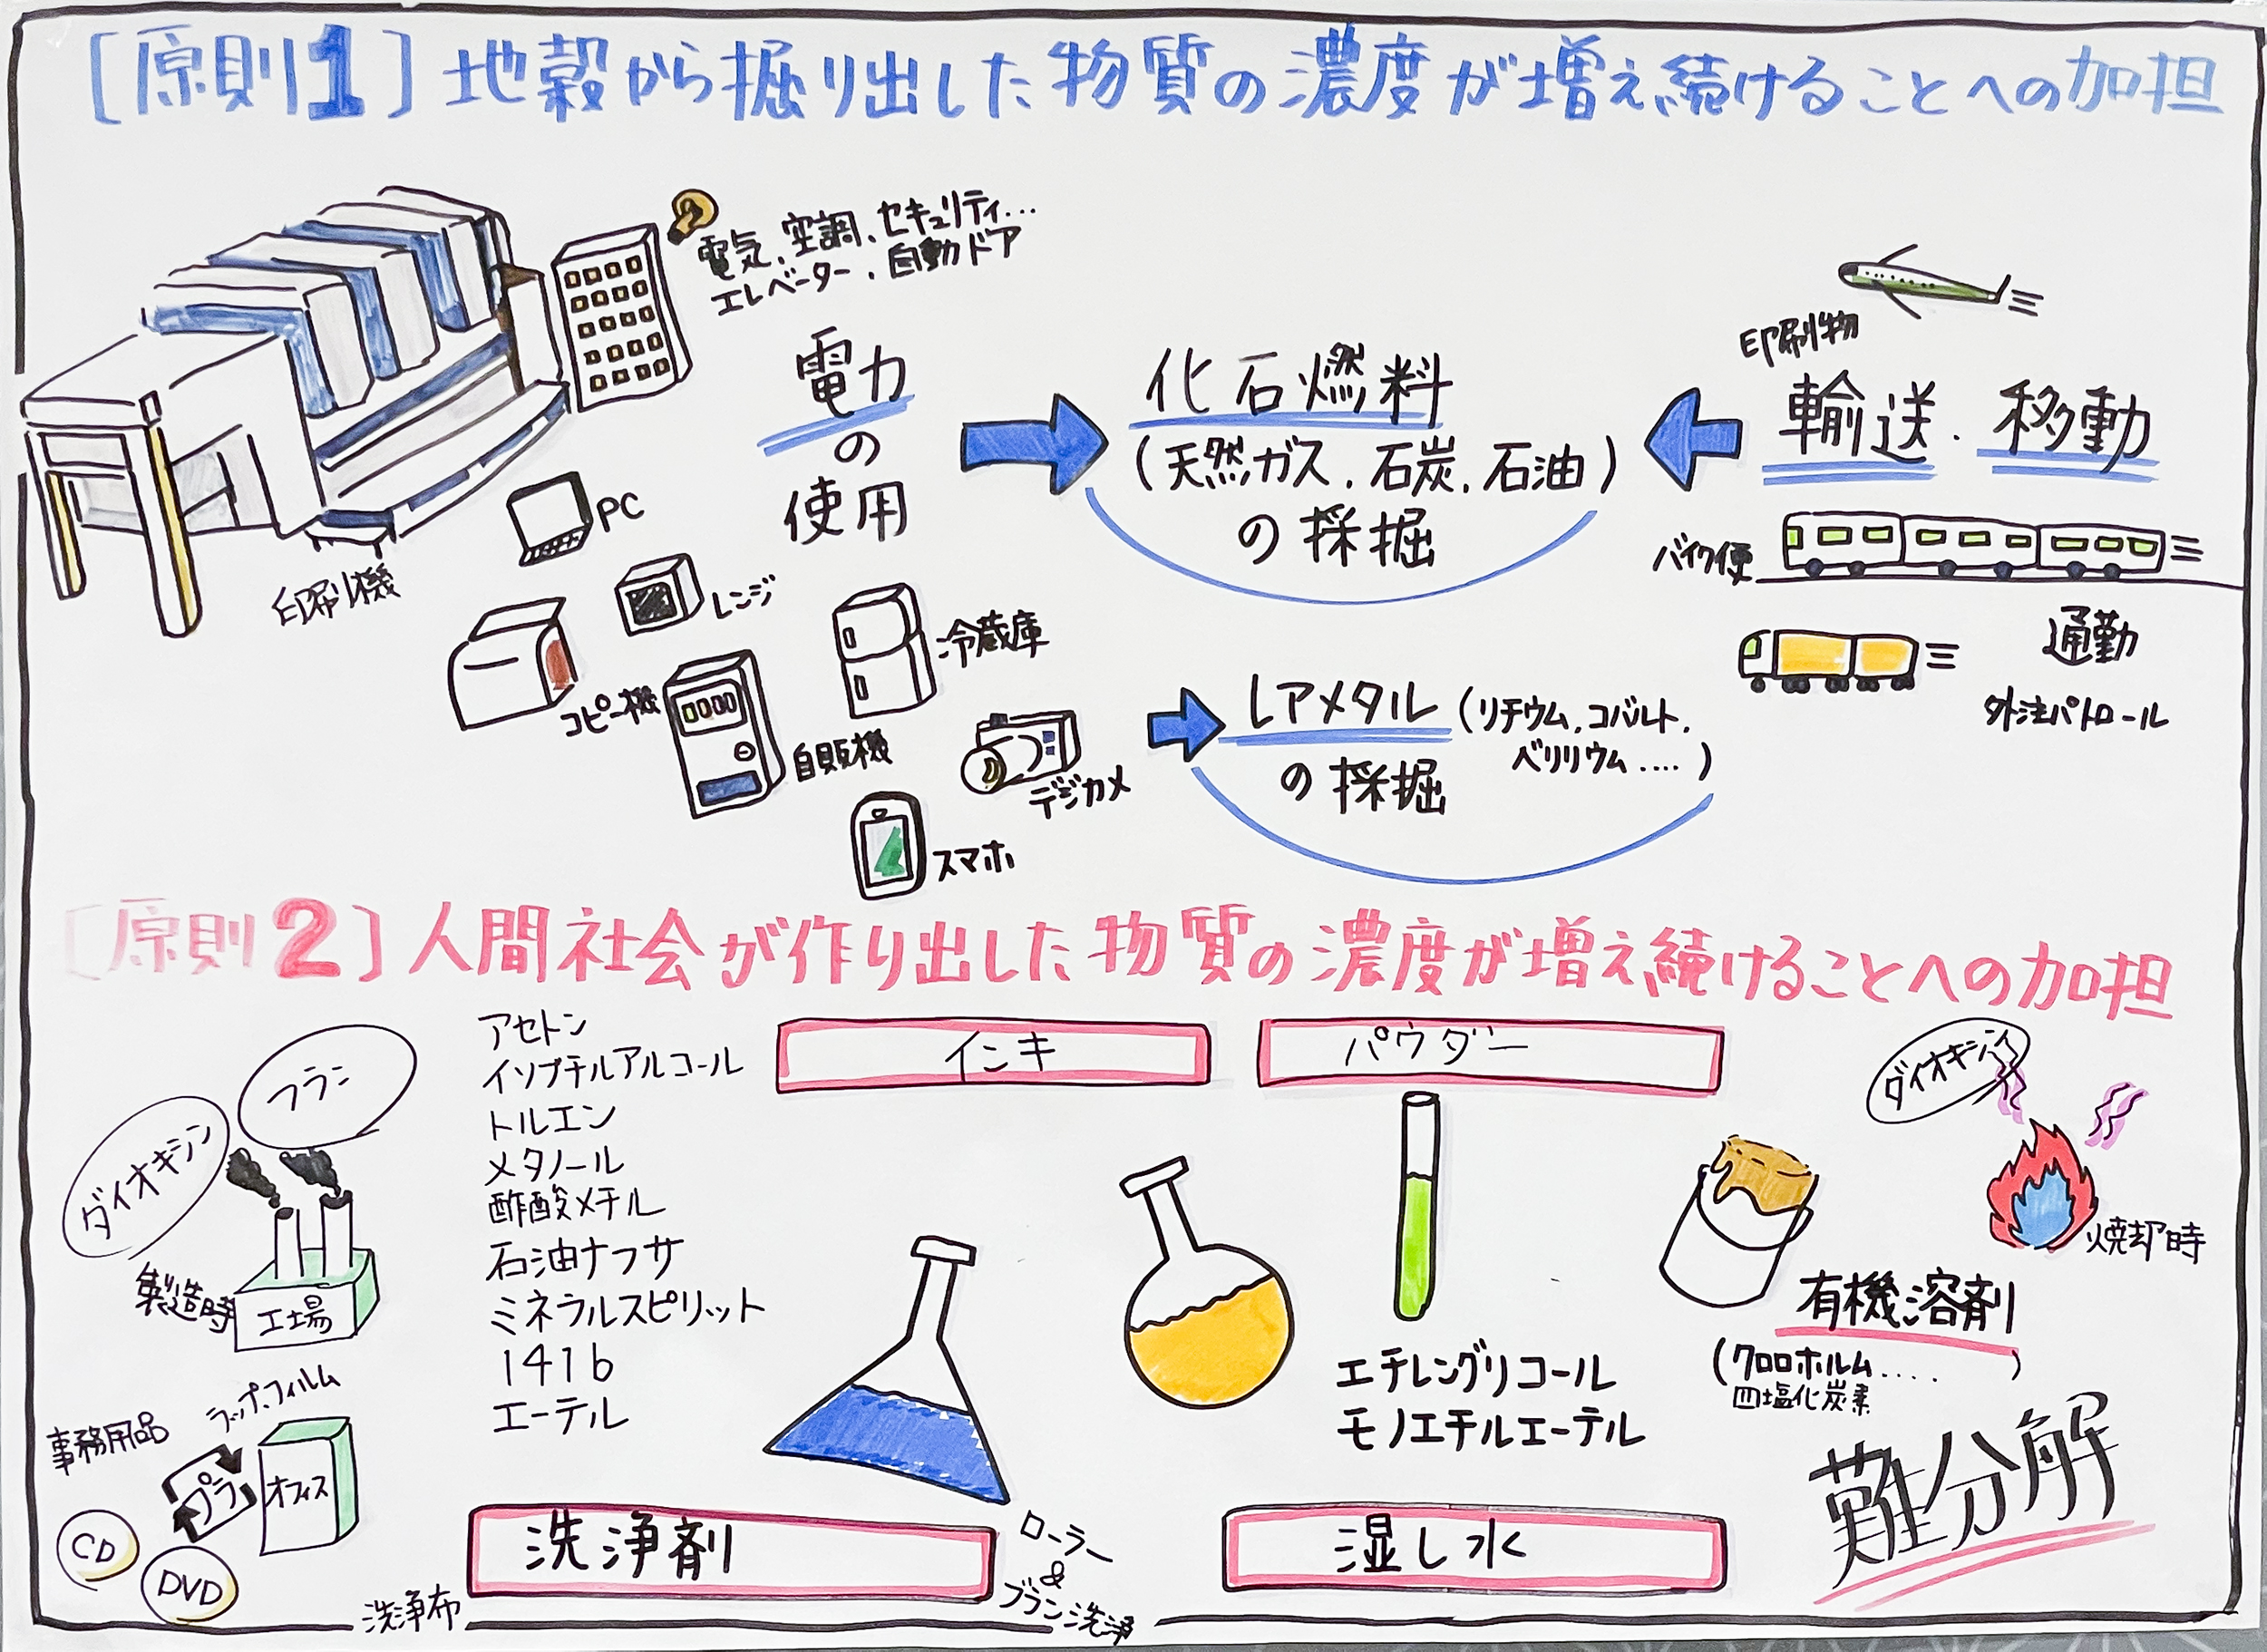 [原則1] 地殻から掘り出した物質の濃度が増え続けることへの加担
電気、空調、セキュリティ…
エレベーター、自動ドア
電力
の
使用
化石燃料
(天然ガス、石炭、石油)
の採掘
印刷物
輸送・移動
バイク便
通勤
外注パトロール
印刷機
PC
レンジ
コピー機
冷蔵庫
自販機
デジカメ
スマホ
レアメタル (リチウム、コバルト、
ベリリウム….)
の採掘
[原則2] 人間社会が作り出した物質の濃度が増え続けることへの加担
フラン
ダイオキシン
製造時
工場
アセトン
イソブチルアルコール
トルエン
メタノール
酢酸メチル
石油ナフサ
ミネラルスピリット
141b
エーテル
インキ
パウダー
ダイオキシン
焼却時
有機溶剤
(クロロホルム….)
四塩化炭素
エチレングリコール
モノエチルエーテル
難分解
ラップ、フィルム
事務用品
プラ
オフィス
CD
DVD
洗浄布
洗浄剤
ローラー
&
ブラン洗浄
湿し水